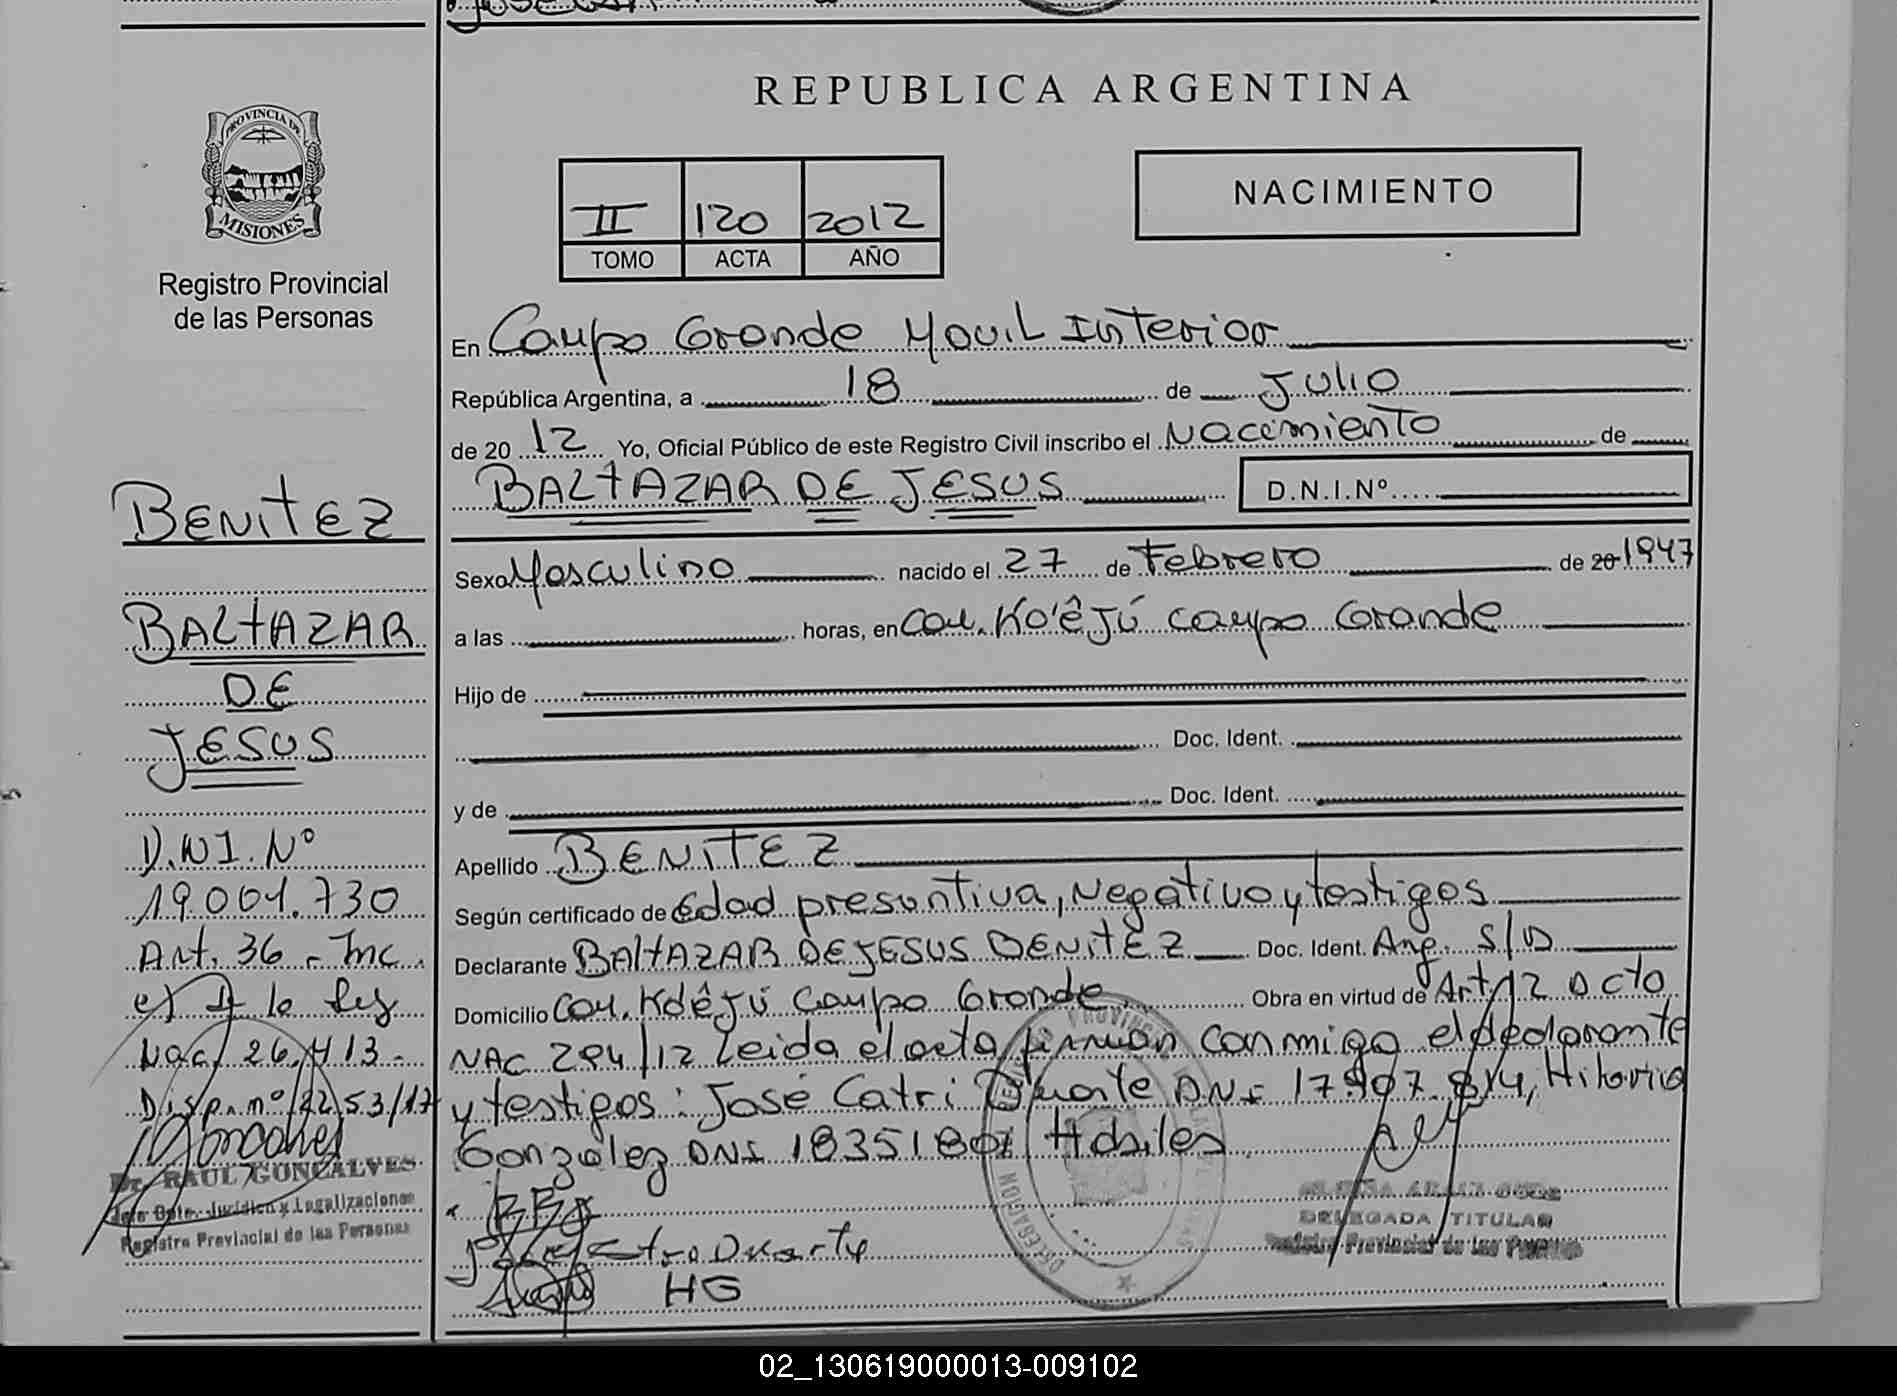 PROVINCIA DE
MISIONES
Registro Provincial
de las Personas
BENITEZ
BALTAZAR
DE
JESUS
D.N.I. Nº
19.001.730
Art. 36 - Inc.
c) D la Ley
Nac. 26.413 -
Disp. nº 2253/17
Dr. RAUL GONCALVES
Jefe Dpto. Jurídico y Legalizaciones
Registro Provincial de las Personas
REPUBLICA ARGENTINA
II 120 2012
TOMO ACTA AÑO
NACIMIENTO
En Campo Grande Movil Interior
República Argentina, a 18 de Julio
de 20 12 Yo, Oficial Público de este Registro Civil inscribo el Nacimiento de
BALTAZAR DE JESUS D.N.I.Nº
Sexo Masculino nacido el 27 de Febrero de 20 1947
a las horas, en Com. Ko'êJú Campo Grande
Hijo de
Doc. Ident.
y de Doc. Ident.
Apellido BENITEZ
Según certificado de Edad presuntiva, Negativo y testigos
Declarante BALTAZAR DE JESUS BENITEZ Doc. Ident. Arg. S/D
Domicilio Com. KoêJú Campo Grande Obra en virtud de Art 12 Dcto
NAC 294/12 Leida el acta firman conmigo el declarante
y testigos: José Catri Duarte DNI 17.907.814, Hilario
González DNI 18351801 Habiles
HG
DELEGADA TITULAR
Registro Provincial de las Personas
02_130619000013-009102